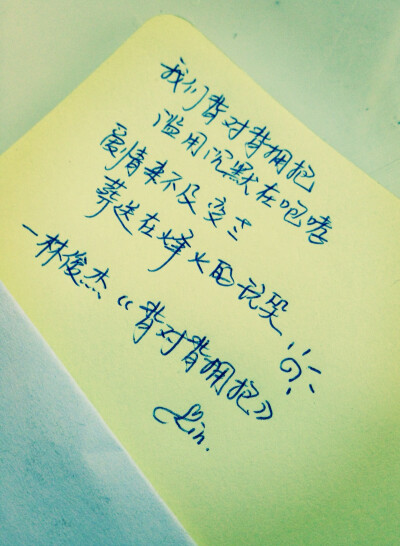 我们背对背拥抱
滥用沉默在咆哮
爱情来不及变老
葬送在烽火的玩笑
—林俊杰《背对背拥抱》
Lin.